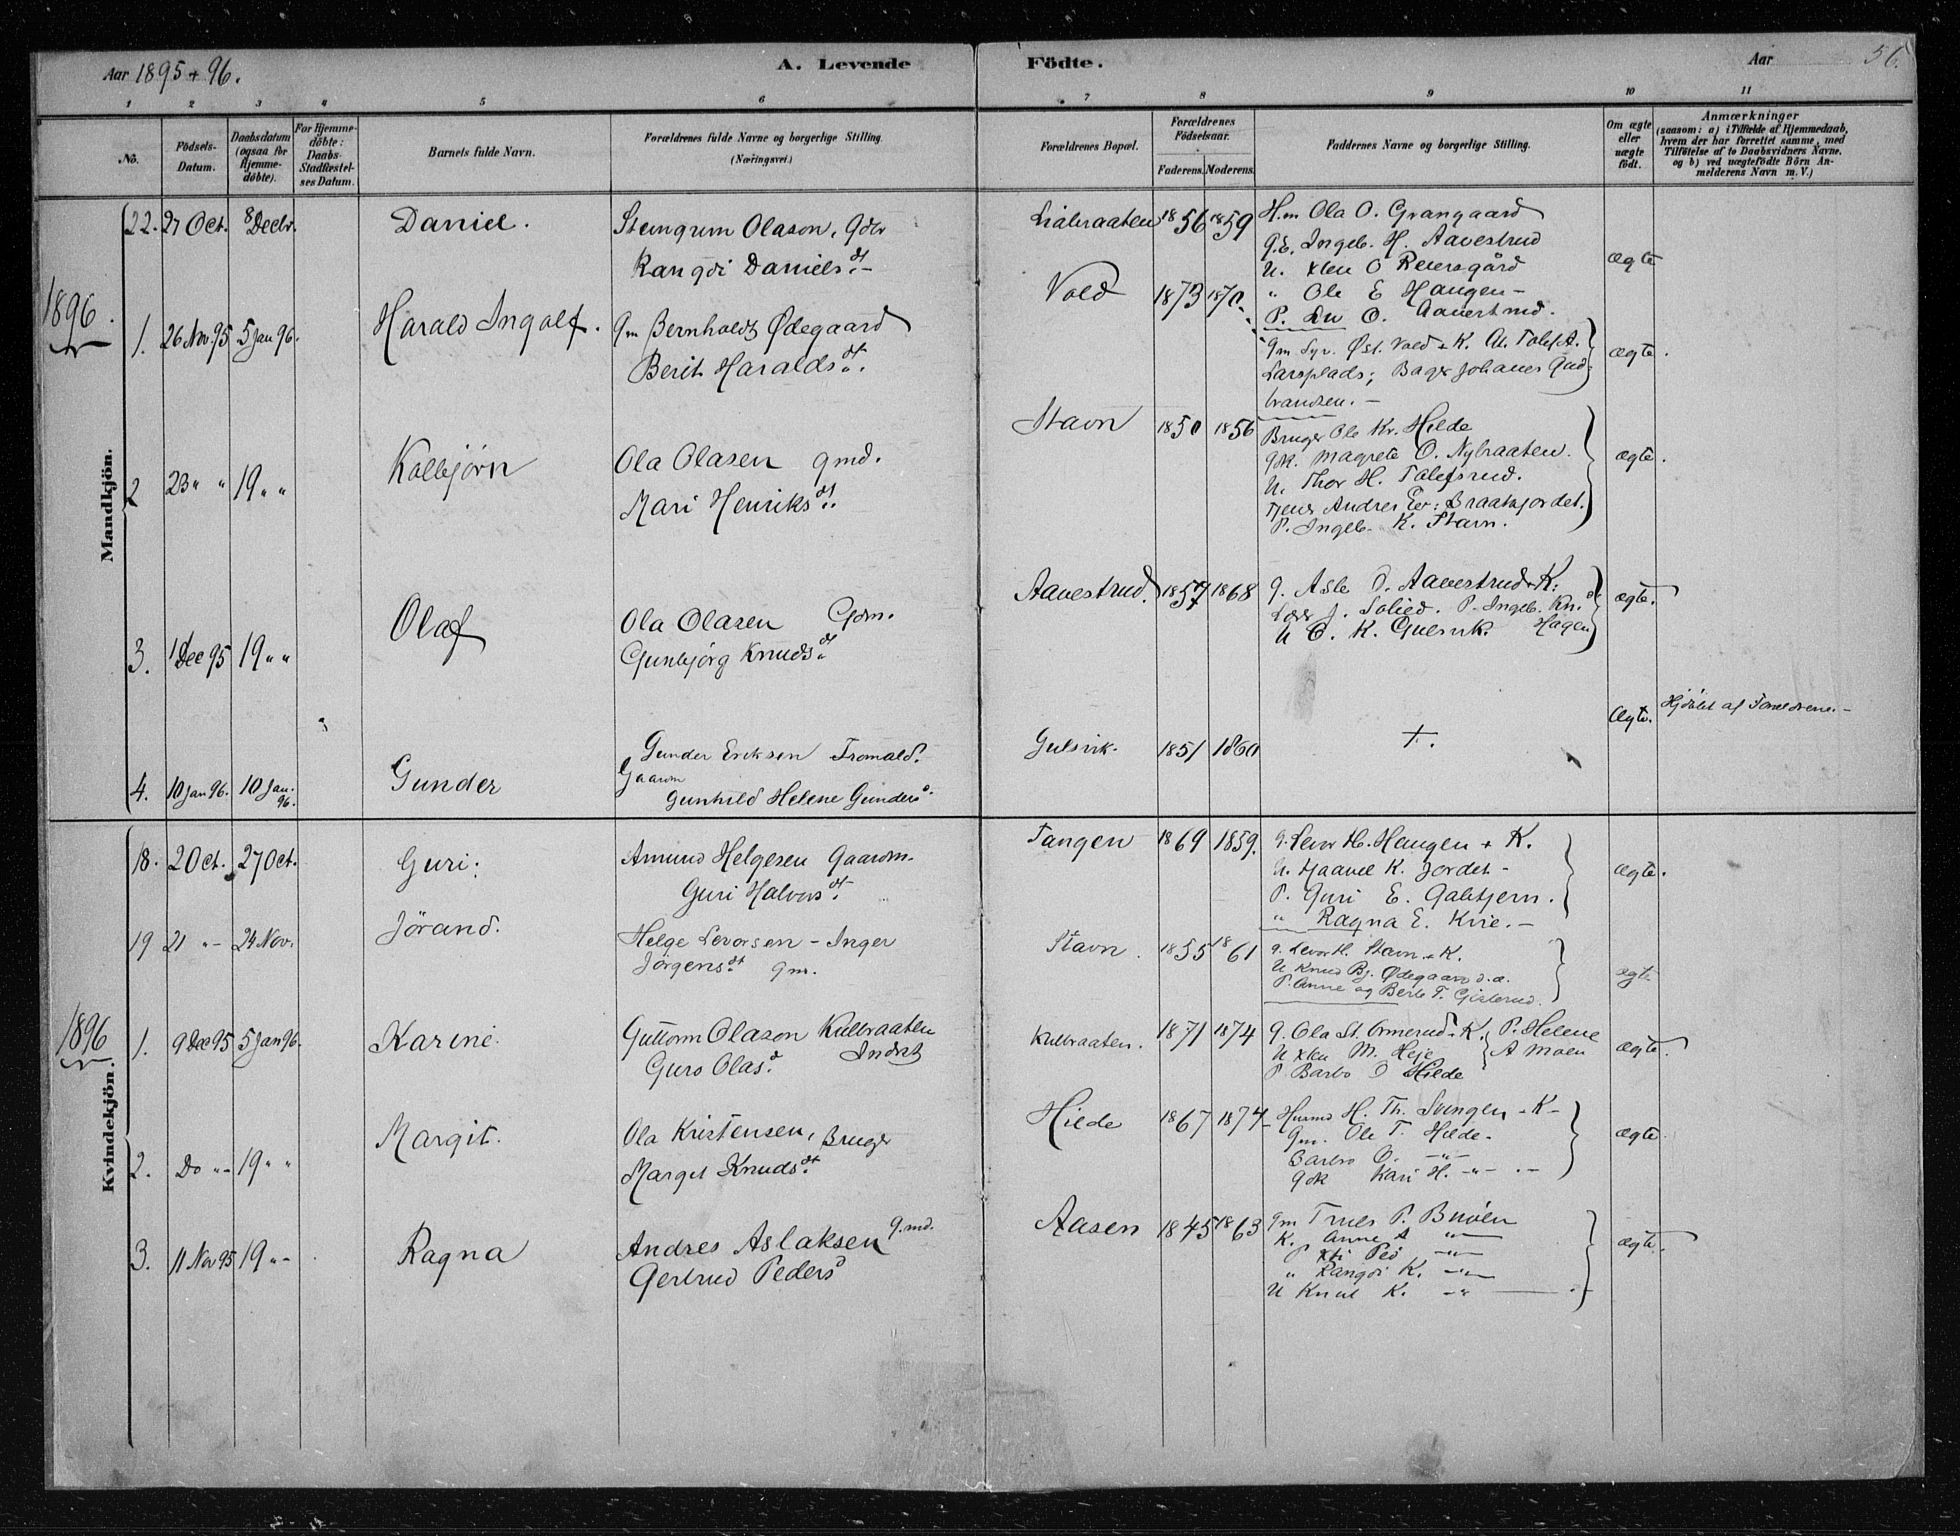 Aar 1895 + 96.
A. Levende Födte.
Aar 56.
1 2 3 4 5 6 7 8 9 10 11
No.
Födsels-Datum.
Daabsdatum (ogsaa for Hjemme-döbte).
For Hjemme-döbte: Daabs-Stadfæstel-ses Datum.
Barnets fulde Navn.
Forældrenes fulde Navne og borgerlige Stilling.
(Næringsvei.)
Forældrenes Bopæl.
Forældrenes Födselsaar.
Faderens. Moderens.
Faddernes Navne og borgerlige Stilling.
Om ægte eller uægte födt.
Anmærkninger
(saasom: a) i Tilfælde af Hjemmedaab,
hvem der har forrettet samme, med
Tilföielse af to Daabsvidners Navne,
og b) ved uægtefödte Börn An-
melderens Navn m. V.)
Mandkjön.
22. 27 Oct. 8 Decbr. Daniel.
Steingrim Olason,
Rangdi Daniels dt.
Liabraaten 1856 1859
Hm Ola O. Grangaard
G.E. Ingeb. H. Aavestrud
U. O Reiersgård
" Ole E Haugen -
P. O. Aavestrud.
ægte
1896.
1. 26 Nov. 95 5 Jan 96. Harald Ingolf.
Gm Bernholdt Ødegaard
Berit Haralds dt.
Vold 1873 1870.
Gm Syv. Øst. Vold + K.
Larsplads; Bager Johanes Gud-
brandsen. -
ægte.
2 23 " " 19 " " Kolbjørn
Ola Olasen gmd.
Mari Henriks dt.
Stavn 1850 1856
Bruger Ole Kr. Hilde
Gk. Magrete O. Nybraaten.
U. Thor H. Tolefsrud.
Andres Braatejordet.
P. Ingeb. K. Stavn.
ægte.
3. 1 Dec 95 19 " " Olaf
Ola Olasen Gdm.
Gunbjörg Knuds dt
Aavestrud. 1857 1868
G. Asle O. Aavestrud + K.
J. Solied. P. Ingeb. Kn. d
U O. K. Gulsvik. Hagen
ægte.
4. 10 Jan 96. 10 Jan. 96. Gunder
Gunder Eriksen Tromald.
Gaarm
Gunhild Helene Gunders d.
Gulsvik. 1851 1860
+.
Ægte.
Hjdöbt af Forældrene. -
Kvindekjön.
18. 20 Oct. 27 Oct. Guri.
Amund Helgesen Gaarm.
Guri Halvors dt.
Tangen 1869 1859.
G. Levor H. Haugen + K.
U. Haavel K. Jordet -
P. Guri E. Galtjern.
" Ragna E. Krie. -
ægte.
19 21 " - 24 Nov. Jörand.
Helge Levorsen - Inger
Jörgens dt gm.
Stavn. 1855 1861
G. Levor H. Stavn + K.
U Knud Bj. Ødegaard
P. Anne og Berte T. Gislerud.
ægte
1896
1. 9 Dec 95 5 Jan 96. Karine.
Guttorm Olason Kulbraaten
Guro Olas d. Inderst
Kulbraaten. 1871 1874
G. Ola St. Ormerud + K. P. Helene
U M. Heje A Moen
P. Barbo O Hilde
ægte.
2. Do " - 19 " " Margit.
Ola Kristensen, Bruger
Margit Knuds dt.
Hilde 1867 1874
Husmd H. Th. Svingen + K -
Gm. Ole T. Hilde -
Barbro O. - " -
Gk Kari H. - " -
ægte
3. 11 Nov 95 19 " - Ragna
Andres Aslaksen g.md.
Gertrud Peders d
Aasen 1845 1863
Gm Truls P. Buöen
K. Anne A " -
P Ped - " -
" Rangdi K. - " -
U Knut K. - " -
ægte.